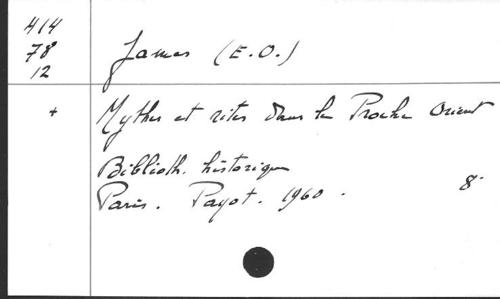 414
78
12
James (E.O.)
+ Mythes et rites dans le Proche Orient
Biblioth. historique
Paris. Payot. 1960. 8°